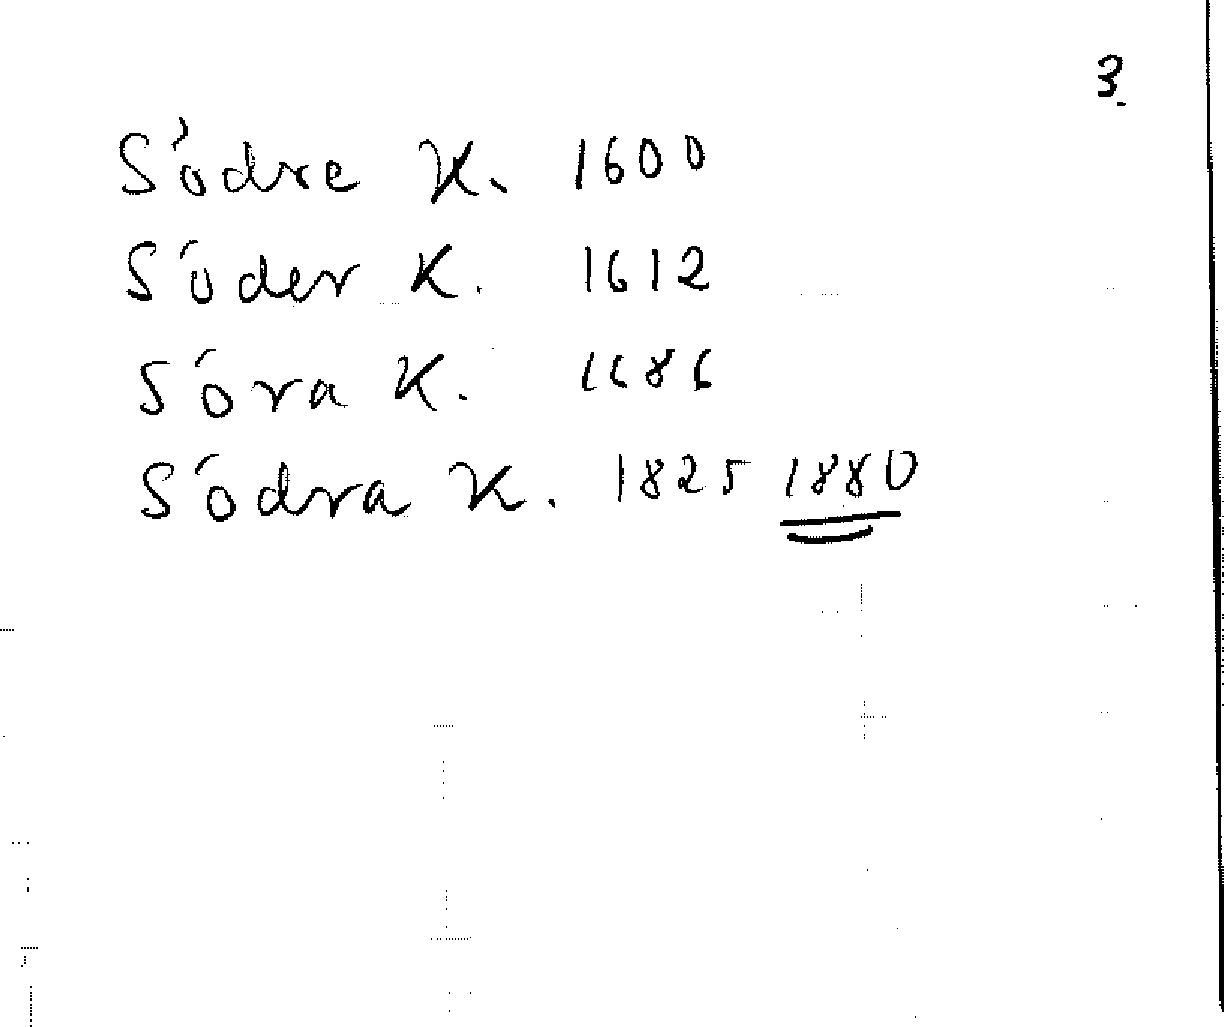 3.
Södre K. 1600
Söder K. 1612
Söra K. 1686
Södra K. 1825 1880